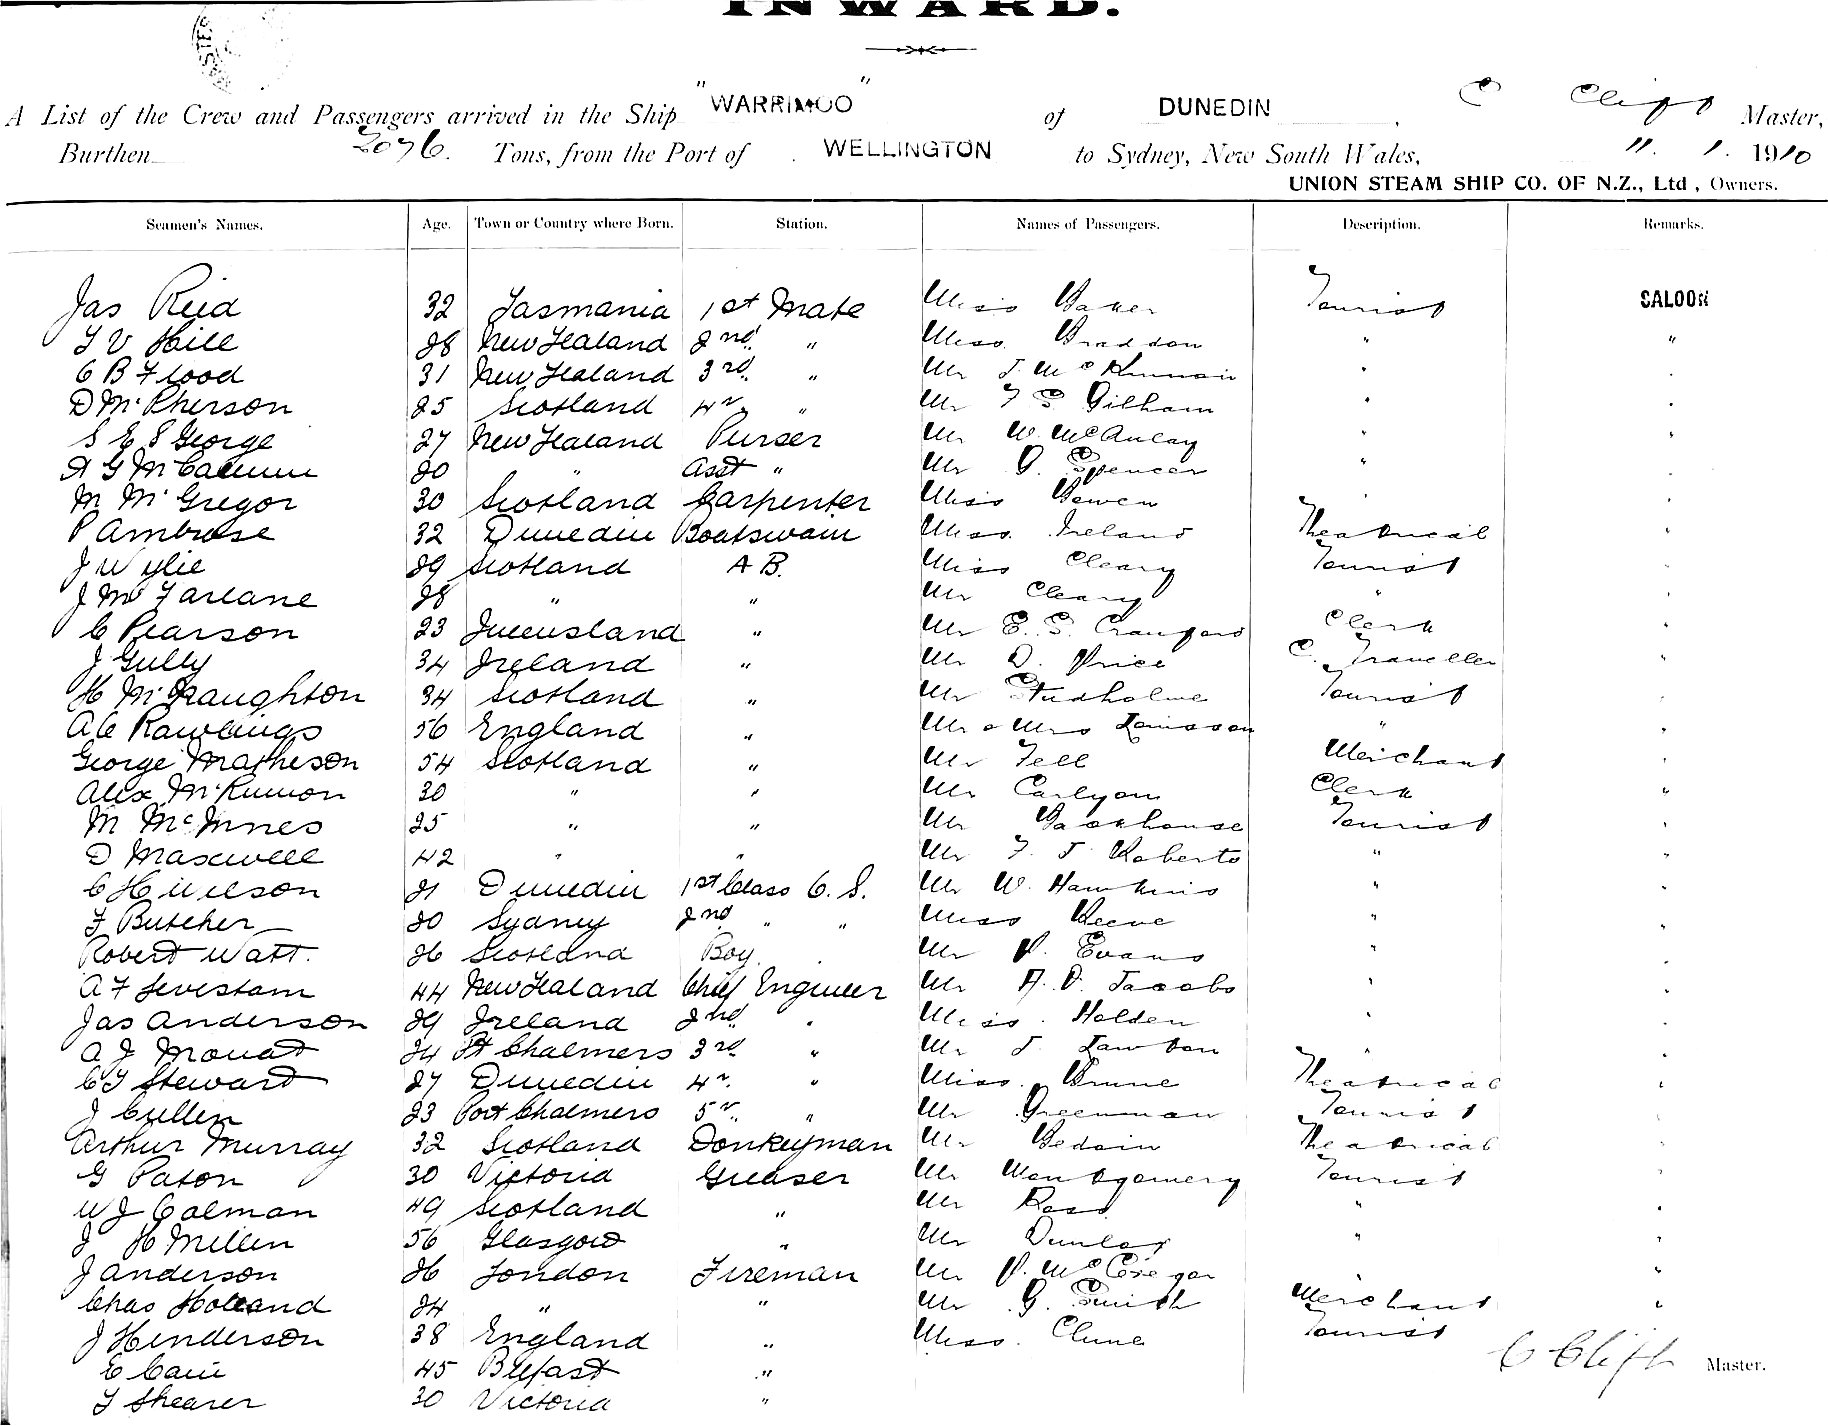 INWARD.
A List of the Crew and Passengers arrived in the Ship "WARRIMOO" of DUNEDIN, C Cliff Master,
Burthen 2076. Tons, from the Port of WELLINGTON to Sydney, New South Wales, 11. 1. 1910
UNION STEAM SHIP CO. OF N.Z., Ltd, Owners.
Seamen's Names. Age. Town or Country where Born. Station. Names of Passengers. Description. Remarks.
Jas Reid 32 Tasmania 1st Mate Miss Baker Tourist SALOON
T V Hill 28 New Zealand 2nd " Miss Braddon " "
C B Flood 31 New Zealand 3rd " Mr J. McKinnon "
D McPherson 25 Scotland 4th " Mr F G Gilham "
S E S George 27 New Zealand Purser Mr W. McAulay "
A G McCallum 20 " Asst " Mr G. Spencer "
M McGregor 30 Scotland Carpenter Miss Bowen "
P Ambrose 32 Dunedin Boatswain Miss Ireland Theatrical "
J Wylie 29 Scotland A B. Miss Cleary Tourist "
J McFarlane 28 " " Mr Cleary " "
C Pearson 23 Queensland " Mr E. G. Crawford Clerk "
J Gully 34 Ireland " Mr D. Price C. Traveller "
H McNaughton 34 Scotland " Mr Studholme Tourist "
A C Rawlings 56 England " Mr & Mrs Louisson " "
George Matheson 54 Scotland " Mr Fell Merchant "
Alex McKinnon 30 " " Mr Carlyon Clerk "
M McInnes 25 " " Mr Backhouse Tourist "
D Maxwell 42 " " Mr F. J. Roberts " "
C H Wilson 21 Dunedin 1st Class C. S. Mr W. Hawkins " "
F Butcher 20 Sydney 2nd " " Miss Reeve " "
Robert Watt. 26 Scotland Boy. Mr P. Evans " "
A F 44 New Zealand Chief Engineer Mr A. D. Jacobs " "
Jas Anderson 29 Ireland 2nd " Miss Holden " "
A J Mouat 24 Pt Chalmers 3rd " Mr J. Lawton " "
C F Steward 27 Dunedin 4th " Miss Brune Theatrical "
J Cullen 23 Port Chalmers 5th " Mr Greenman Tourist "
Arthur Murray 32 Scotland Donkeyman Mr Bedoin Theatrical "
G Paton 30 Victoria Greaser Mr Montgomery Tourist "
W J Calman 49 Scotland " Mr Ross " "
J H Millen 56 Glasgow " Mr Dunlop " "
J Anderson 26 London Fireman Mr P. McGregor "
Chas Holland 24 " " Mr G. Smith Merchant "
J Henderson 38 England " Miss Clune Tourist
E Cain 45 Belfast " C Cliff Master.
T Shearer 30 Victoria "